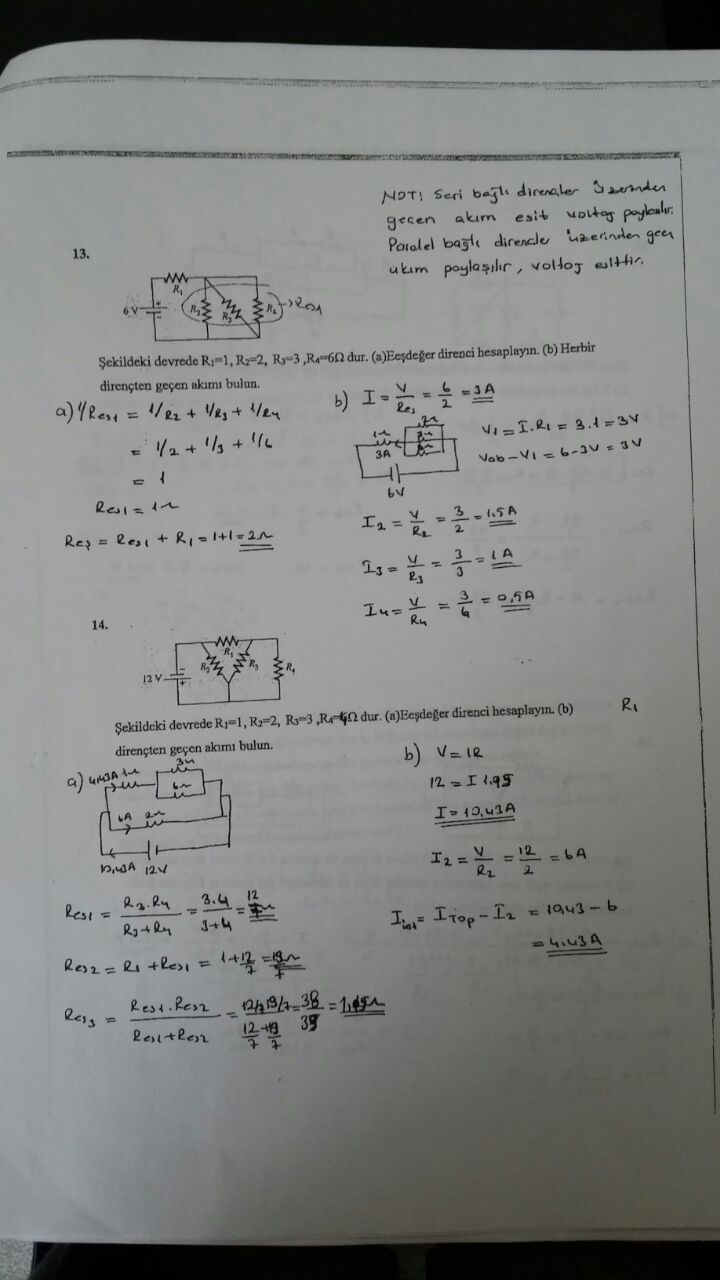 NOT! Seri bağlı dirençler üzerinden
geçen akım eşit voltaj paylaşılır.
Paralel bağlı dirençle üzerinden geçen
akım paylaşılır, voltaj eşittir.
13.
R1
6 V
R2
R3
R4
Reş1
Şekildeki devrede R1=1, R2=2, R3=3 ,R4=6Ω dur. (a)Eeşdeğer direnci hesaplayın. (b) Herbir
dirençten geçen akımı bulun.
a) 1/Reş1 = 1/R2 + 1/R3 + 1/R4
= 1/2 + 1/3 + 1/6
= 1
Reş1 = 1Ω
Reş = Reş1 + R1 = 1+1 = 2Ω
b) I = V/Reş = 6/2 = 3A
1Ω
2Ω
3Ω
3A
6V
V1 = I.R1 = 3.1 = 3V
Vab - V1 = 6-3V = 3V
I2 = V/R2 = 3/2 = 1.5A
I3 = V/R3 = 3/3 = 1A
I4 = V/R4 = 3/6 = 0,5A
14.
R1
12 V
R2
R3
R4
Şekildeki devrede R1=1, R2=2, R3=3 ,R4=4Ω dur. (a)Eeşdeğer direnci hesaplayın. (b) R1
dirençten geçen akımı bulun.
a) 4,43A 1Ω
3Ω
6Ω
6A 2Ω
10,43A 12V
Reş1 = R3.R4/R3+R4 = 3.4/3+4 = 12/7Ω
Reş2 = R1 + Reş1 = 1+12/7 = 19Ω/7
Reş3 = Reş1.Reş2/Reş1+Reş2 = 12/7 19/7 / 12/7+19/7 = 38/39 =
b) V = IR
12 = I
I = 10,43A
I2 = V/R2 = 12/2 = 6A
I = ITOP - I2 = 10,43 - 6
= 4,43A